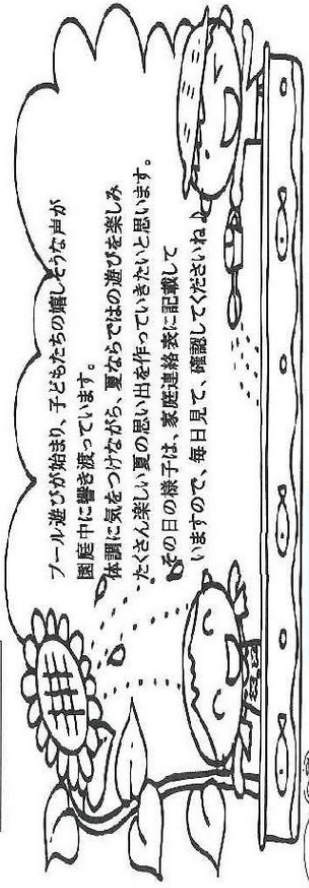 プール遊びが始まり、子どもたちの嬉しそうな声が
園庭中に響き渡っています。
体調に気をつけながら、夏ならではの遊びを楽しみ
たくさん楽しい夏の思い出を作っていきたいと思います。
その日の様子は、家庭連絡表に記載して
いますので、毎日見て、確認してくださいね♪